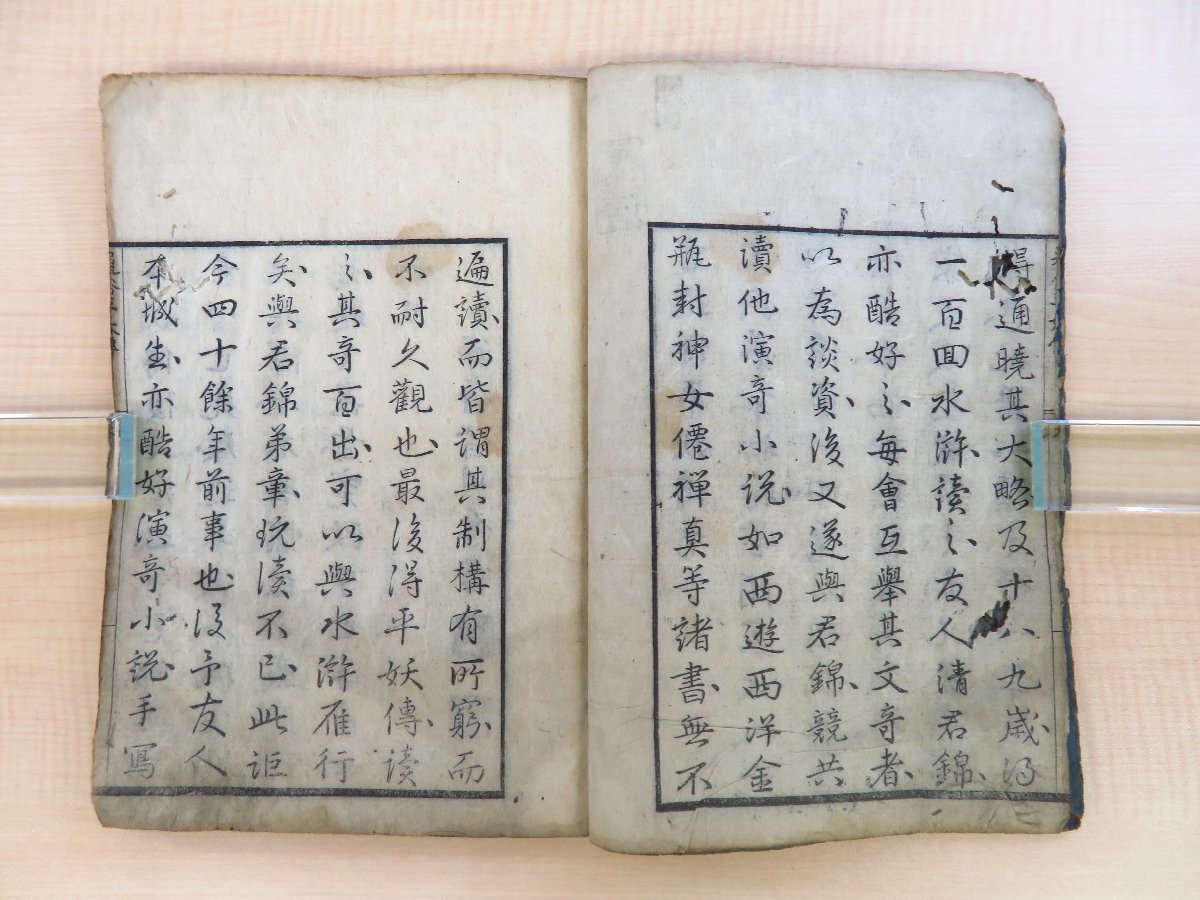 得通曉其大略及十八九歲得
一百回水滸讀之友人清君錦
亦酷好之每會互舉其文奇者
以為談資後又遂與君錦競共
讀他演奇小說如西遊西洋金
瓶封神女僊禪真等諸書無不
遍讀而皆謂其制構有所窮而
不耐久觀也最後得平妖傳讀
之其奇百出可以與水滸雁行
矣與君錦弟章玩讀不已此詎
今四十餘年前事也後予友人
本城生亦酷好演奇小說手寫